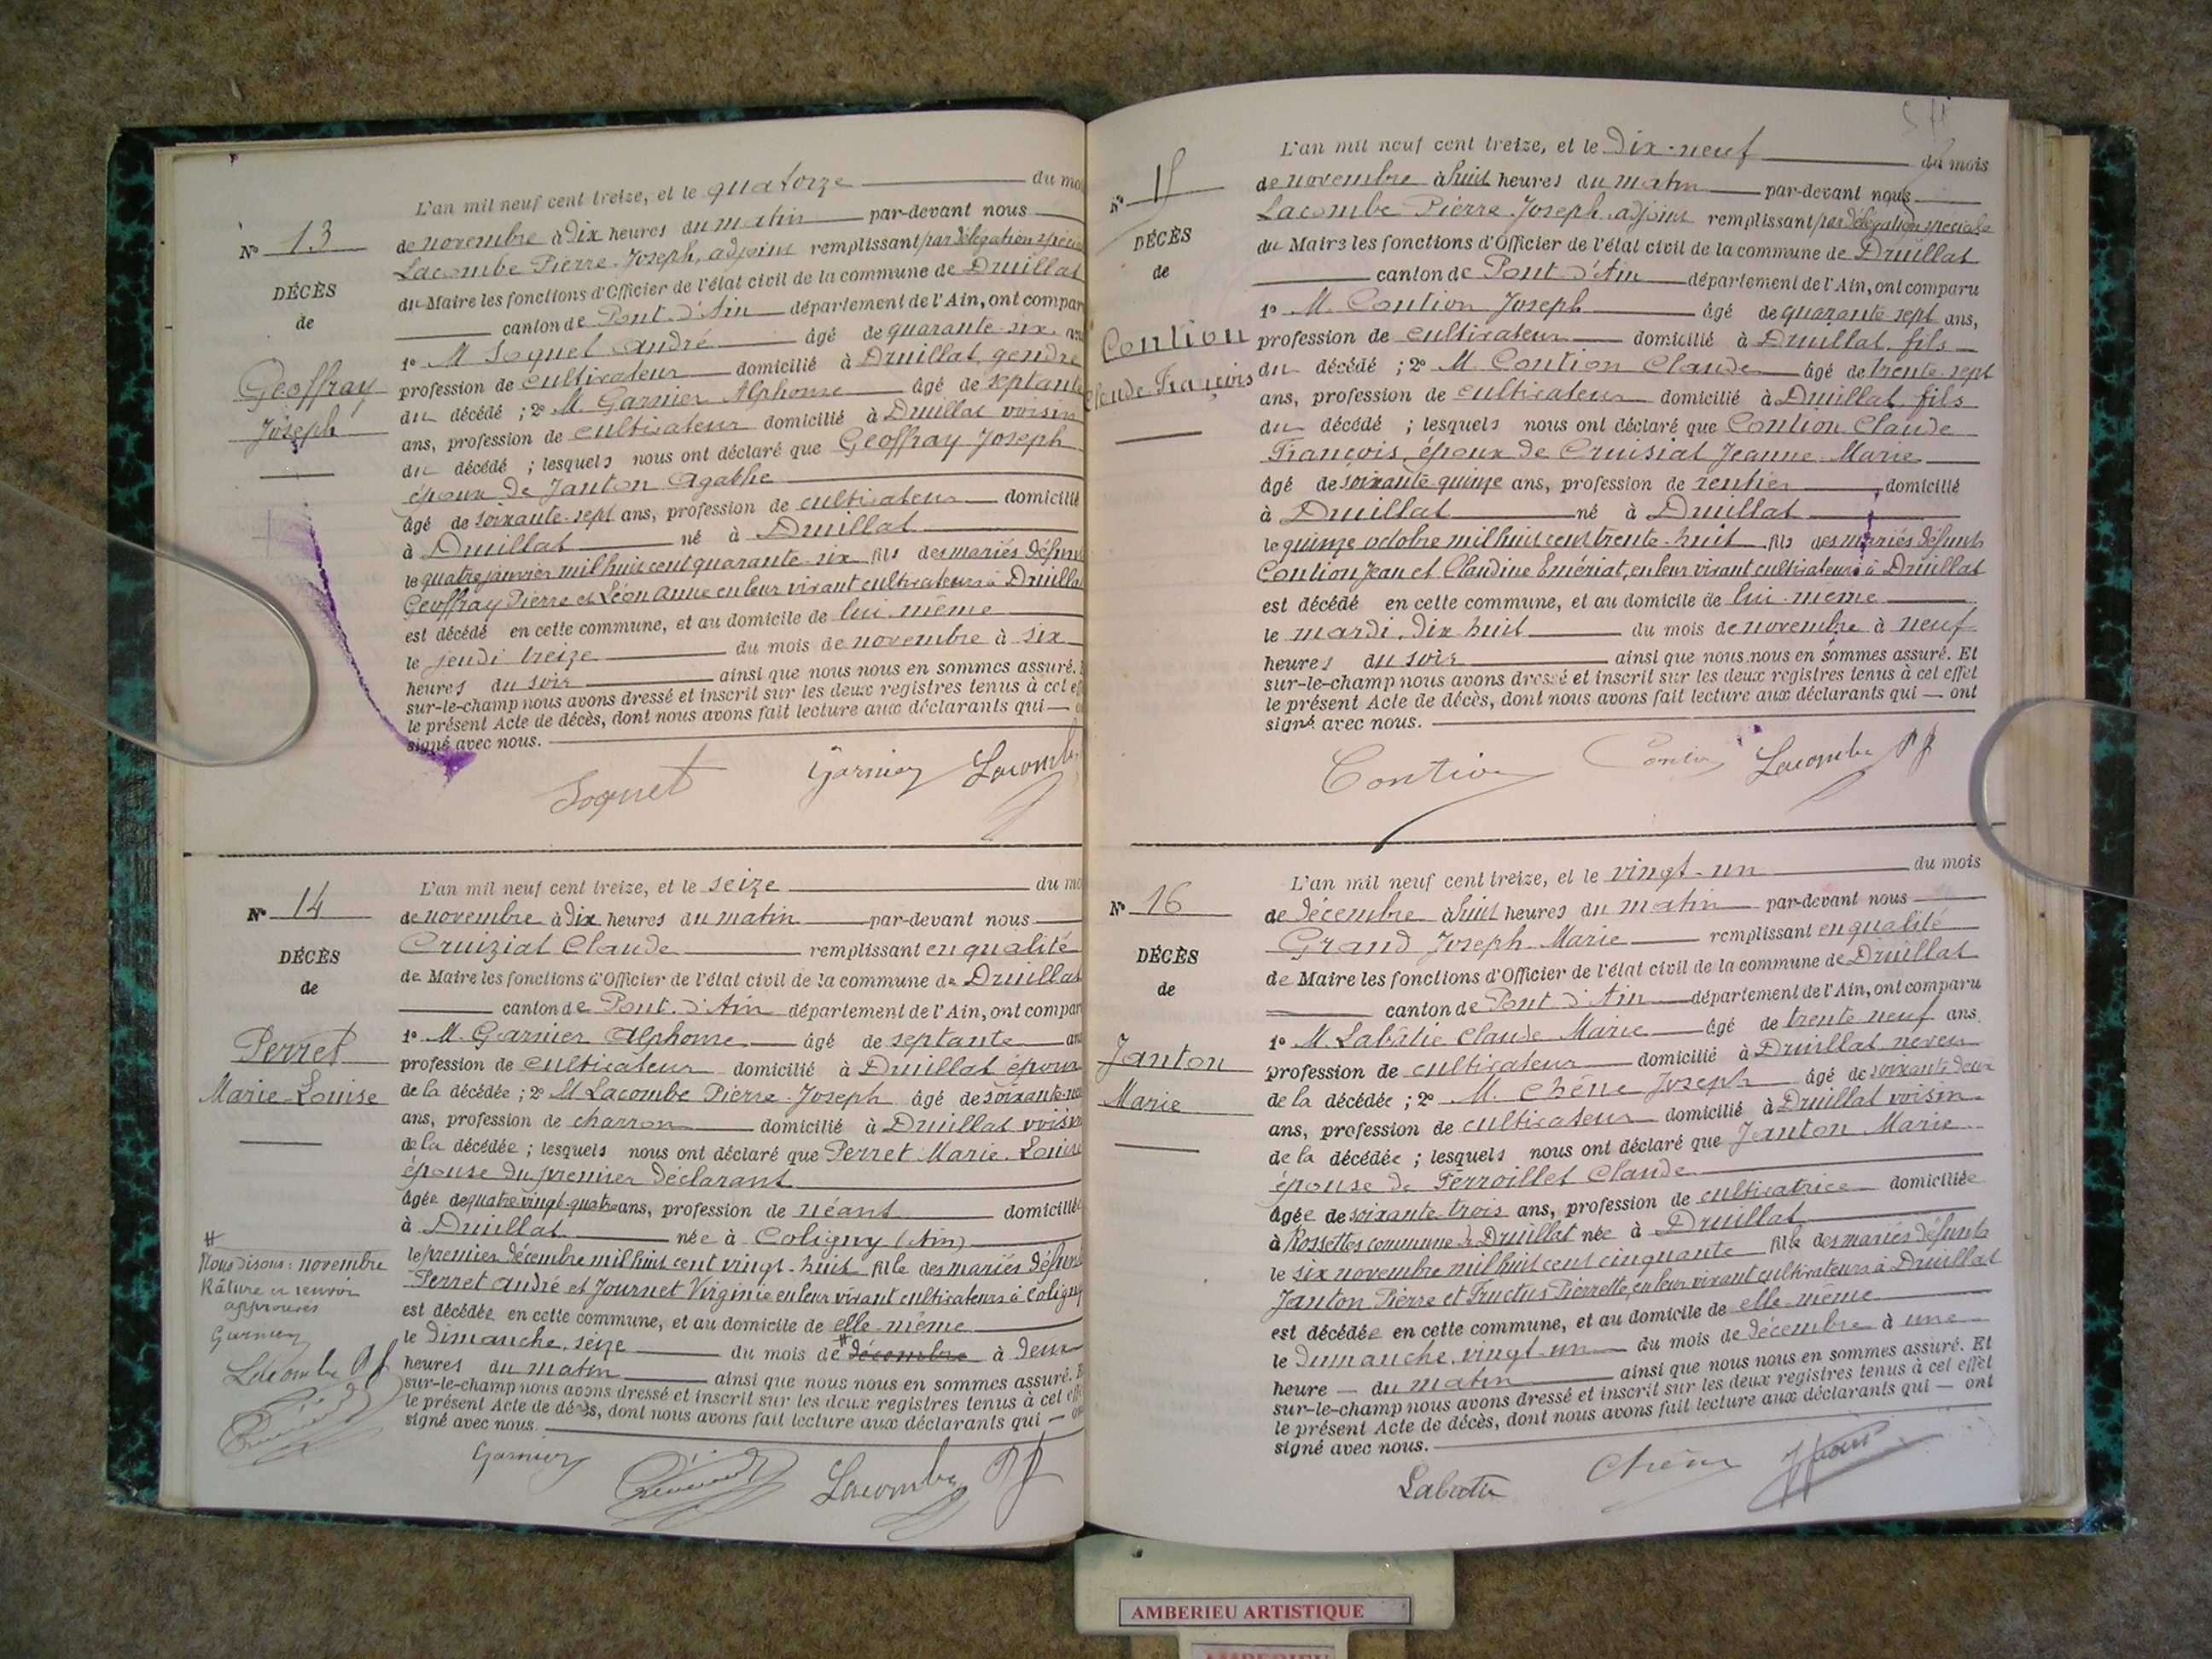 L'an mil neuf cent treize, et le quatorze du mo
Nº 13
de novembre à dix heures du matin par-devant nous
Lacombe Pierre-Joseph, adjoint remplissant par délégation spécia
DÉCÈS
du Maire les fonctions d'Officier de l'état civil de la commune de Druillat
de
canton de Pont-d'Ain département de l'Ain, ont compar
1º M Soquet André âgé de quarante-six an
Geoffray
profession de cultivateur domicilié à Druillat, gendre
Joseph
du décédé ; 2º M. Garnier Alphonse âgé de septante
ans, profession de cultivateur domicilié à Druillat voisin
du décédé ; lesquels nous ont déclaré que Geoffray Joseph
époux de Janton Agathe
âgé de soixante-sept ans, profession de cultivateur domicilié
à Druillat né à Druillat
le quatre janvier mil huit cent quarante-six fils des mariés défun
Geoffray Pierre et Léon Anne en leur vivant cultivateurs à Druilla
est décédé en cette commune, et au domicile de lui-même
le jeudi treize du mois de novembre à six
heures du soir ainsi que nous nous en sommes assuré.
sur-le-champ nous avons dressé et inscrit sur les deux registres tenus à cet eff
le présent Acte de décès, dont nous avons fait lecture aux déclarants qui —
signé avec nous.
Soquet Garnier Lacombe
L'an mil neuf cent treize, et le seize du mo
Nº 14
de novembre à dix heures du matin par-devant nous
Cruiziat Claude remplissant en qualité
DÉCÈS
de Maire les fonctions d'Officier de l'état civil de la commune de Druillat
de
canton de Pont-d'Ain département de l'Ain, ont compar
1º M. Garnier Alphonse âgé de septante an
Perret
profession de cultivateur domicilié à Druillat époux
Marie-Louise
de la décédée ; 2º M Lacombe Pierre-Joseph âgé de soixante-
ans, profession de charron domicilié à Druillat voisin
de la décédée ; lesquels nous ont déclaré que Perret Marie-Louise
épouse du premier déclarant
âgée de quatre vingt-quatre ans, profession de néant domiciliée
à Druillat née à Coligny (Ain)
le premier décembre mil huit cent vingt-huit fille des mariés défun
Perret André et Journet Virginie en leur vivant cultivateurs à Coligny
est décédée en cette commune, et au domicile de elle-même
le dimanche, seize du mois de # décembre à deux
heures du matin ainsi que nous nous en sommes assuré.
sur-le-champ nous avons dressé et inscrit sur les deux registres tenus à cet eff
le présent Acte de décès, dont nous avons fait lecture aux déclarants qui — on
signé avec nous.
#
Nous disons : novembre
Râture et renvoi
approuvés
Garnier
Lacombe PJ
Garnier Lacombe PJ
L'an mil neuf cent treize, et le dix-neuf du mois
Nº 15
de novembre à huit heures du matin par-devant nous
Lacombe Pierre-Joseph, adjoint remplissant par délégation spéciale
DÉCÈS
du Maire les fonctions d'Officier de l'état civil de la commune de Druillat
de
canton de Pont-d'Ain département de l'Ain, ont comparu
1º M. Contion Joseph âgé de quarante sept ans,
Contion
profession de cultivateur domicilié à Druillat, fils
Claude François
du décédé ; 2º M. Contion Claude âgé de trente-sept
ans, profession de cultivateur domicilié à Druillat, fils
du décédé ; lesquels nous ont déclaré que Contion Claude
François, époux de Cruisiat Jeanne-Marie
âgé de soixante quinze ans, profession de rentier domicilié
à Druillat né à Druillat
le quinze octobre mil huit cent trente-huit fils des mariés défunts
Contion Jean et Claudine Emériat, en leur vivant cultivateurs à Druillat
est décédé en cette commune, et au domicile de lui-même
le mardi, dix huit du mois de novembre à neuf
heures du soir ainsi que nous nous en sommes assuré. Et
sur-le-champ nous avons dressé et inscrit sur les deux registres tenus à cet effet
le présent Acte de décès, dont nous avons fait lecture aux déclarants qui — ont
signé avec nous.
Contion Contion Lacombe PJ
L'an mil neuf cent treize, et le vingt-un du mois
Nº 16
de décembre à huit heures du matin par-devant nous
Grand Joseph-Marie remplissant en qualité
DÉCÈS
de Maire les fonctions d'Officier de l'état civil de la commune de Druillat
de
canton de Pont-d'Ain département de l'Ain, ont comparu
1º M. Labâtie Claude Marie âgé de trente neuf ans
Janton
profession de cultivateur domicilié à Druillat neveu
Marie
de la décédée ; 2º M. Chêne Joseph âgé de soixante deux
ans, profession de cultivateur domicilié à Druillat voisin
de la décédée ; lesquels nous ont déclaré que Janton Marie
épouse de Ferroillet Claude
âgée de soixante-trois ans, profession de cultivatrice domiciliée
à Rossettes commune de Druillat née à Druillat
le six novembre mil huit cent cinquante fille des mariés défunts
Janton Pierre et Fructus Pierrette, en leur vivant cultivateurs à Druillat
est décédée en cette commune, et au domicile de elle-même
le dimanche, vingt-un du mois de décembre à une
heure — du matin ainsi que nous nous en sommes assuré. Et
sur-le-champ nous avons dressé et inscrit sur les deux registres tenus à cet effet
le présent Acte de décès, dont nous avons fait lecture aux déclarants qui — ont
signé avec nous.
Labatie Chêne
AMBERIEU ARTISTIQUE
AMBERIEU